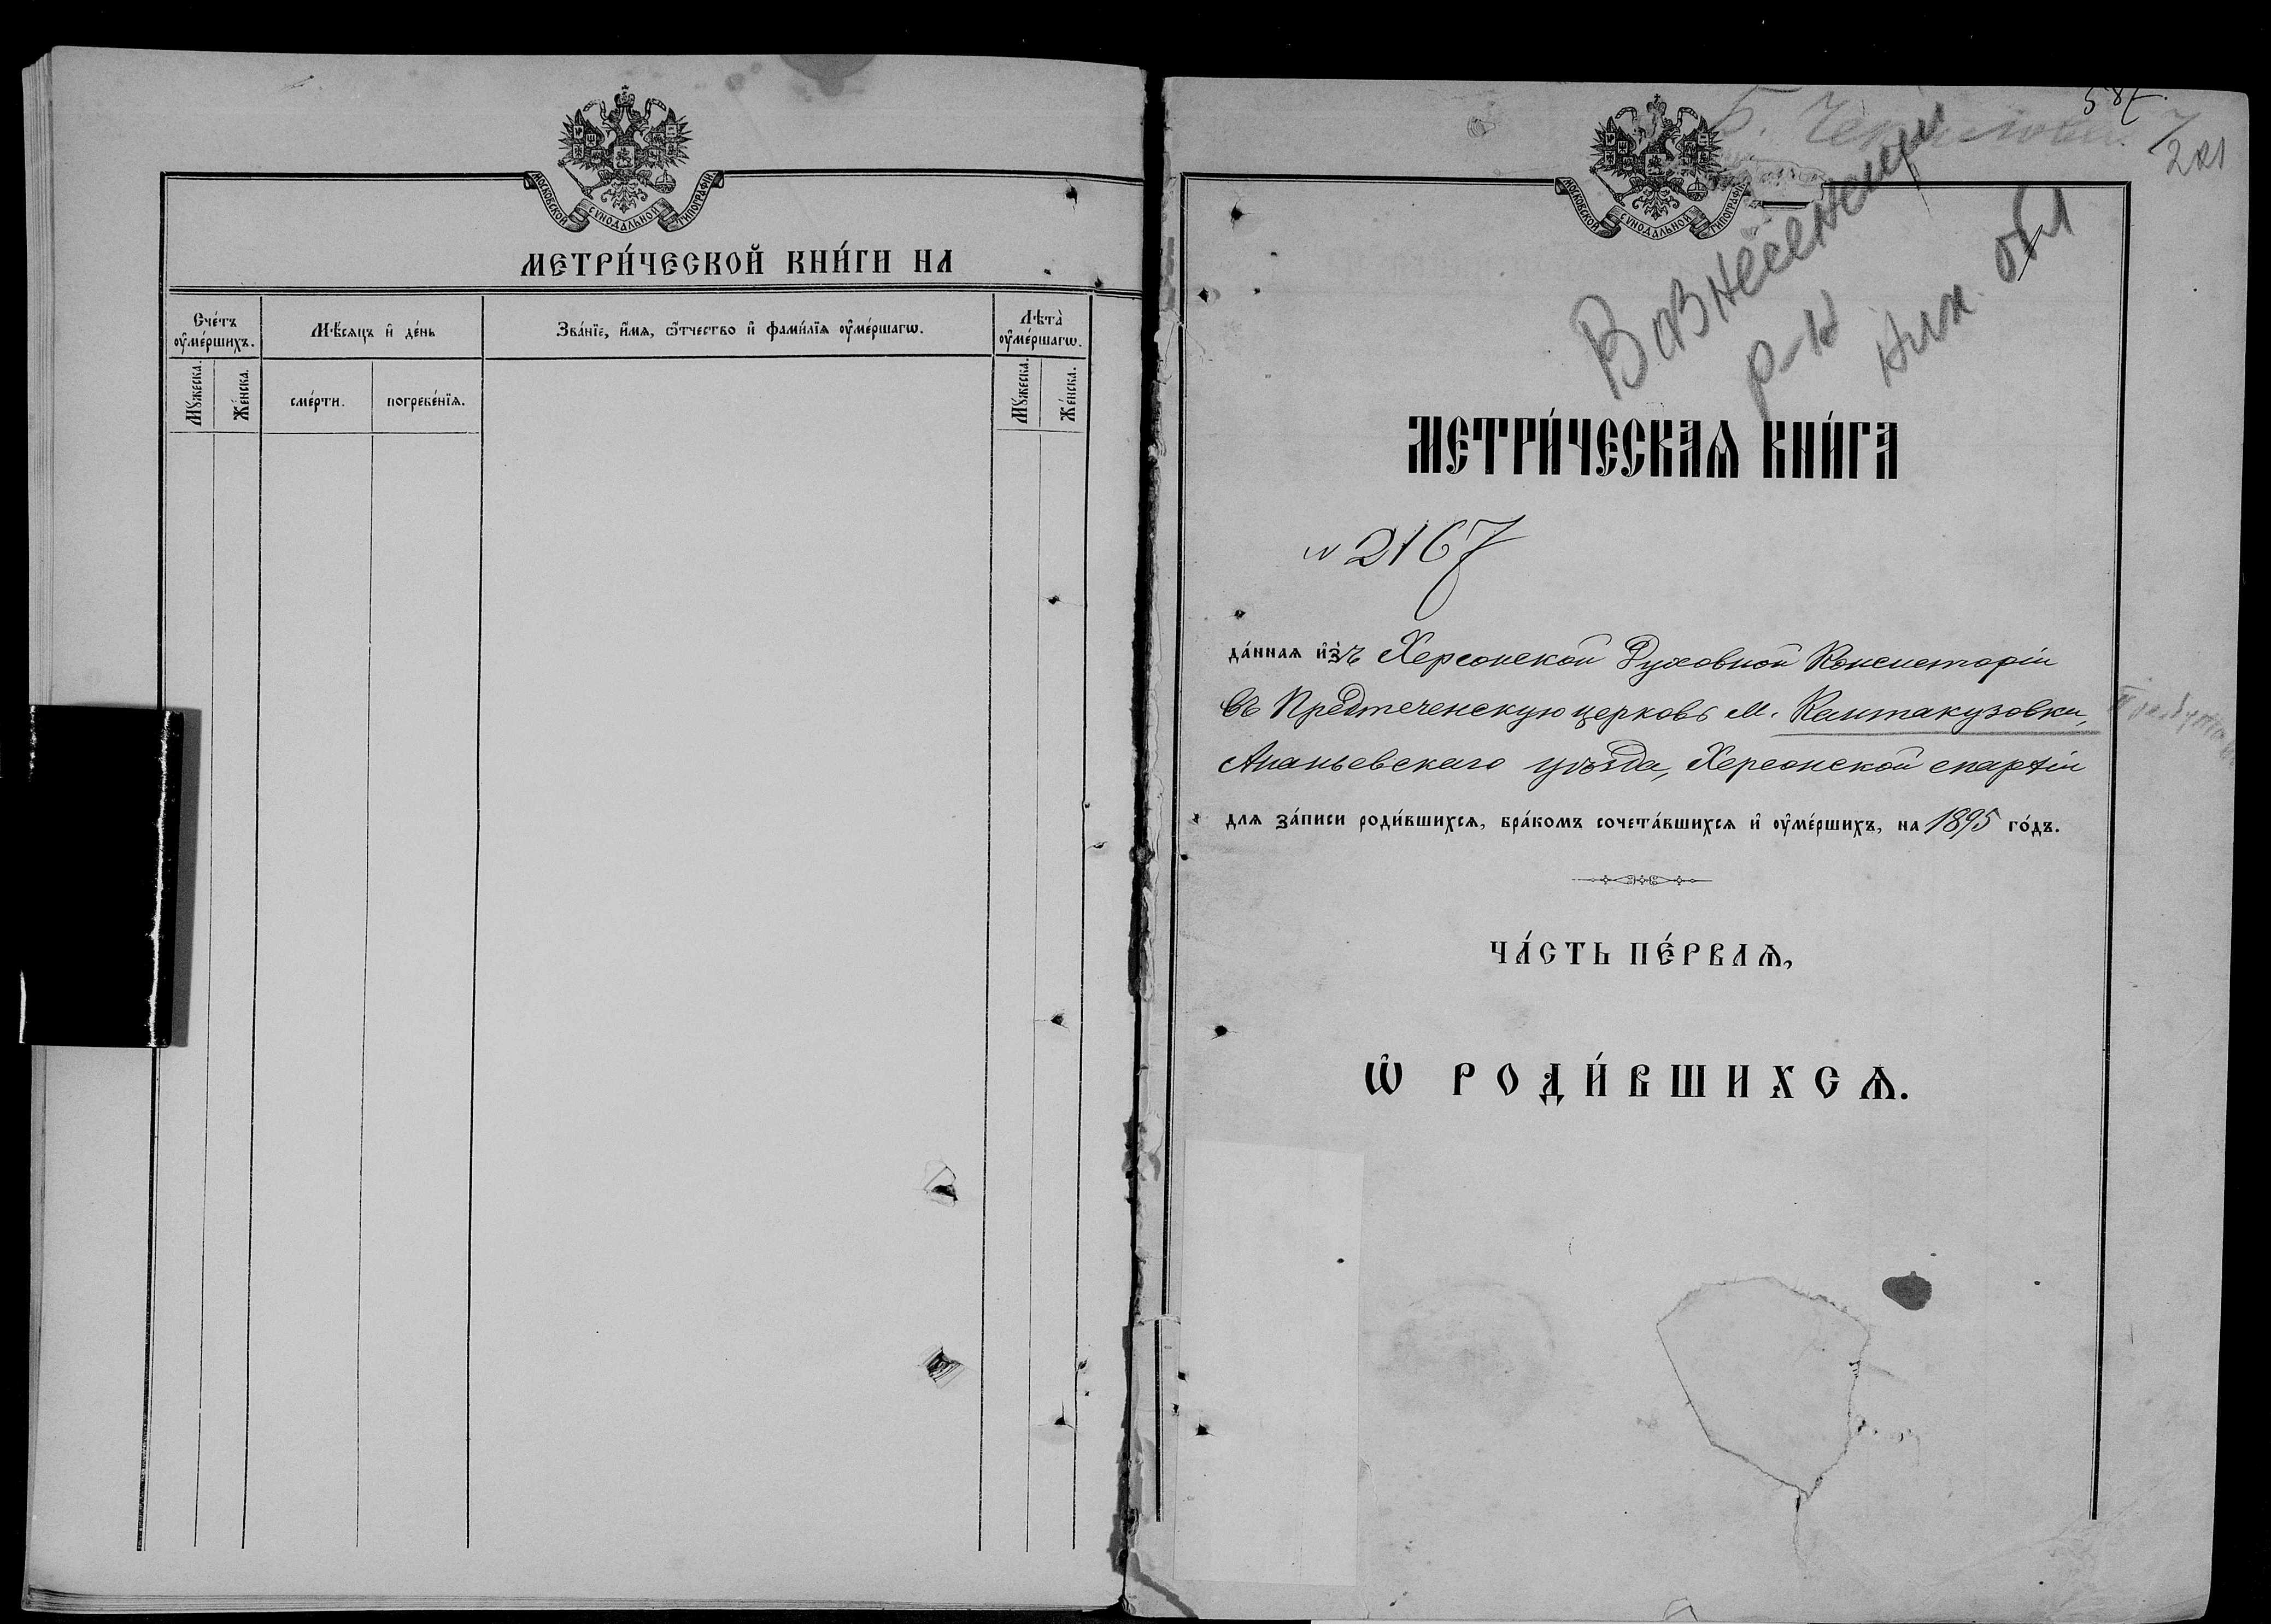 МОСКОВСКОЙ СѴНОДАЛЬНОЙ ТИПОГРАФІИ
МЕТРИ́ЧЕСКОЙ КНИ́ГИ НА
Сче́тъ ᲂу҆ме́ршихъ.
Мѣ́сяцъ и҆ де́нь
Зва́нїе, и҆́мѧ, ѻ҆́тчество и҆ фами́лїѧ ᲂу҆ме́ршагѡ.
Лѣта̀ ᲂу҆ме́ршагѡ.
Мꙋ́жеска.
Же́нска.
сме́рти.
погребе́нїѧ.
Мꙋ́жеска.
Же́нска.
587.
201
МОСКОВСКОЙ СѴНОДАЛЬНОЙ ТИПОГРАФІИ
Вознесенский
р-н
Ник. обл
МЕТРИ́ЧЕСКАѦ КНИ́ГА
№ 2167
да́ннаѧ и҆зъ Херсонской Духовной Консисторіи
въ Предтеченскую церковь м. Кантакузовки,
Ананьевскаго уѣзда, Херсонской епархіи
длѧ за́писи роди́вшихсѧ, бра́комъ сочета́вшихсѧ и҆ ᲂу҆ме́ршихъ, на 1895 го́дъ.
ЧА́СТЬ ПЕ́РВАѦ,
Ѡ҆ РОДИ́ВШИХСѦ.